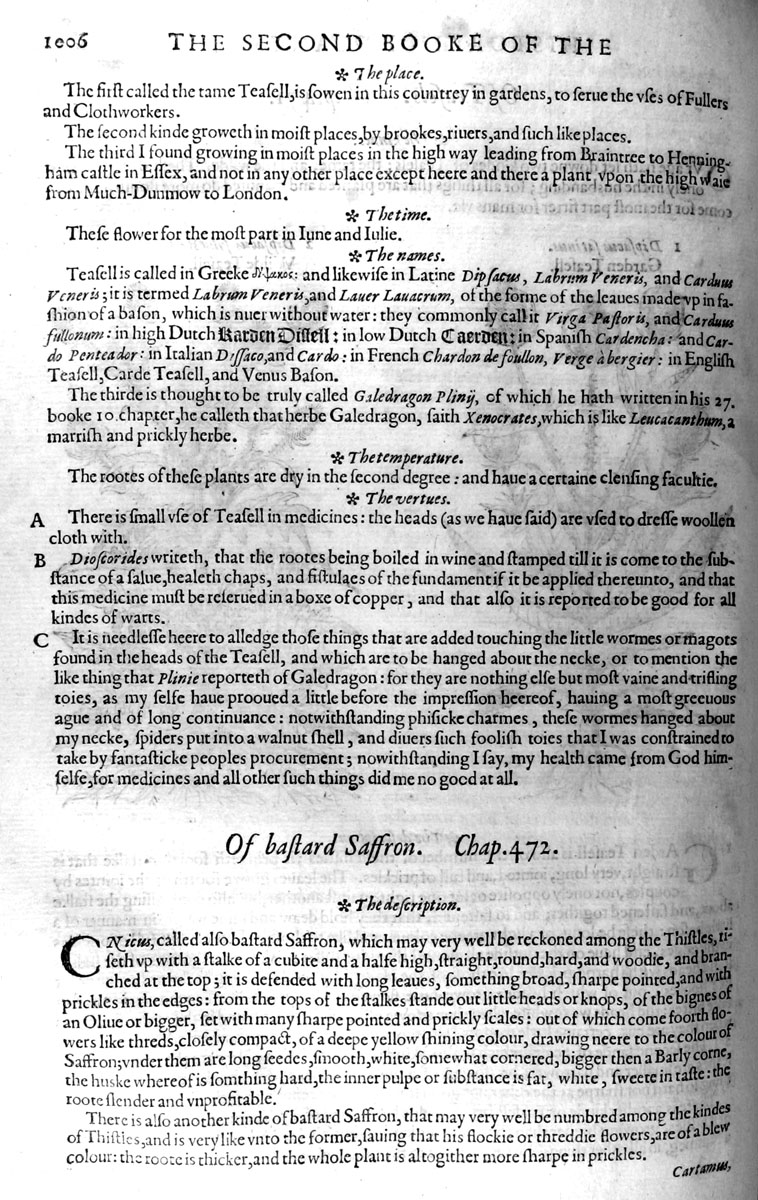 1006 THE SECOND BOOKE OF THE
✻ The place.
The first called the tame Teasell,is sowen in this countrey in gardens, to serue the vses of Fullers
and Clothworkers.
The second kinde groweth in moist places,by brookes,riuers,and such like places.
The third I found growing in moist places in the high way leading from Braintree to Henning-
ham castle in Essex, and not in any other place except heere and there a plant vpon the high waie
from Much-Dunmow to London.
✻ The time.
These flower for the most part in Iune and Iulie.
✻ The names.
Teasell is called in Greeke and likewise in Latine Dipsacus, Labrum Veneris, and Carduus
Veneris; it is termed Labrum Veneris,and Lauer Lauacrum, of the forme of the leaues made vp in fa-
shion of a bason, which is nuer without water: they commonly call it Virga Pastoris, and Carduus
fullonum: in high Dutch Karden Distell: in low Dutch Caerden: in Spanish Cardencha: and Car-
do Penteador: in Italian Dissaco,and Cardo: in French Chardon de foullon, Verge à bergier: in English
Teasell,Carde Teasell, and Venus Bason.
The thirde is thought to be truly called Galedragon Plinij, of which he hath written in his 27.
booke 10.chapter,he calleth that herbe Galedragon, saith Xenocrates,which is like Leucacanthum,a
marrish and prickly herbe.
✻ The temperature.
The rootes of these plants are dry in the second degree: and haue a certaine clensing facultie.
✻ The vertues.
A There is small vse of Teasell in medicines: the heads (as we haue said) are vsed to dresse woollen
cloth with.
B Dioscorides writeth, that the rootes being boiled in wine and stamped till it is come to the sub-
stance of a salue,healeth chaps, and fistulaes of the fundament if it be applied thereunto, and that
this medicine must be reserued in a boxe of copper, and that also it is reported to be good for all
kindes of warts.
C It is needlesse heere to alledge those things that are added touching the little wormes or magots
found in the heads of the Teasell, and which are to be hanged about the necke, or to mention the
like thing that Plinie reporteth of Galedragon: for they are nothing else but most vaine and trifling
toies, as my selfe haue prooued a little before the impression heereof, hauing a most greeuous
ague and of long continuance: notwithstanding phisicke charmes, these wormes hanged about
my necke, spiders put into a walnut shell, and diuers such foolish toies that I was constrained to
take by fantasticke peoples procurement; nowithstanding I say, my health came from God him-
selfe,for medicines and all other such things did me no good at all.
Of bastard Saffron. Chap.472.
✻ The description.
CNicus, called also bastard Saffron, which may very well be reckoned among the Thistles, ri-
seth vp with a stalke of a cubite and a halfe high,straight,round,hard,and woodie, and bran-
ched at the top; it is defended with long leaues, something broad, sharpe pointed,and with
prickles in the edges: from the tops of the stalkes stande out little heads or knops, of the bignes of
an Oliue or bigger, set with many sharpe pointed and prickly scales: out of which come foorth flo-
wers like threds,closely compact, of a deepe yellow shining colour, drawing neere to the colour of
Saffron;vnder them are long seedes,smooth,white,somewhat cornered, bigger then a Barly corne,
the huske whereof is somthing hard,the inner pulpe or substance is fat, white, sweete in taste: the
roote slender and vnprofitable.
There is also another kinde of bastard Saffron, that may very well be numbred among the kindes
of Thistles,and is very like vnto the former,sauing that his flockie or threddie flowers,are of a blew
colour: the roote is thicker,and the whole plant is altogither more sharpe in prickles.
Cartamus,